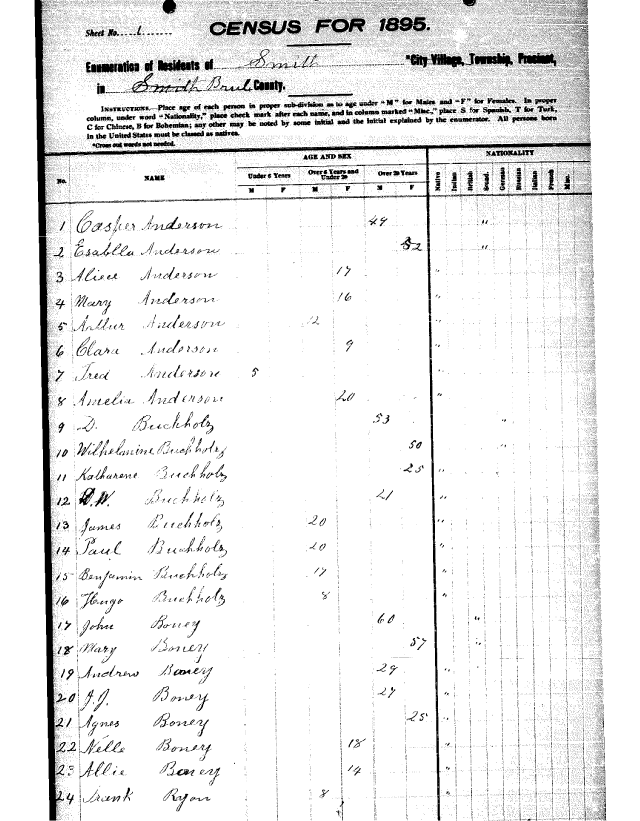 Sheet No. 1
CENSUS FOR 1895.
Enumeration of Residents of Smith *City Village, Township, Precinct,
in Smith Brul County.
INSTRUCTIONS.—Place age of each person in proper sub-division as to age under "M" for Males and "F" for Females. In proper
column, under word "Nationality," place check mark after each name, and in column marked "Misc.," place S for Spanish, T for Turk,
C for Chinese, B for Bohemian; any other may be noted by some initial and the initial explained by the enumerator. All persons born
in the United States must be classed as natives.
*Cross out words not needed.
No. NAME AGE AND SEX NATIONALITY
Under 6 Years Over 6 Years and Under 20 Over 20 Years
M F M F M F Native Indian British Scand. German Russian Italian French Misc.
1 Casper Anderson 49 "
2 Esablla Anderson 52 "
3 Aliece Anderson 17 "
4 Mary Anderson 16 "
5 Arthur Anderson 12 "
6 Clara Anderson 9 "
7 Fred Anderson 5 "
8 Amelia Anderson 20 "
9 D. Buchholz 53 "
10 Wilhelmine Buchholz 50 "
11 Katharene Buchholz 25 "
12 D.W. Buchholz 21 "
13 James Buchholz 20 "
14 Paul Buchholz 20 "
15 Benjamin Buchholz 17 "
16 Hugo Buchholz 8 "
17 John Boney 60 "
18 Mary Boney 57 "
19 Andrew Boney 29 "
20 J.J. Boney 27 "
21 Agnes Boney 25 "
22 Nelle Boney 18 "
23 Allie Boney 14 "
24 Frank Ryon 8 "